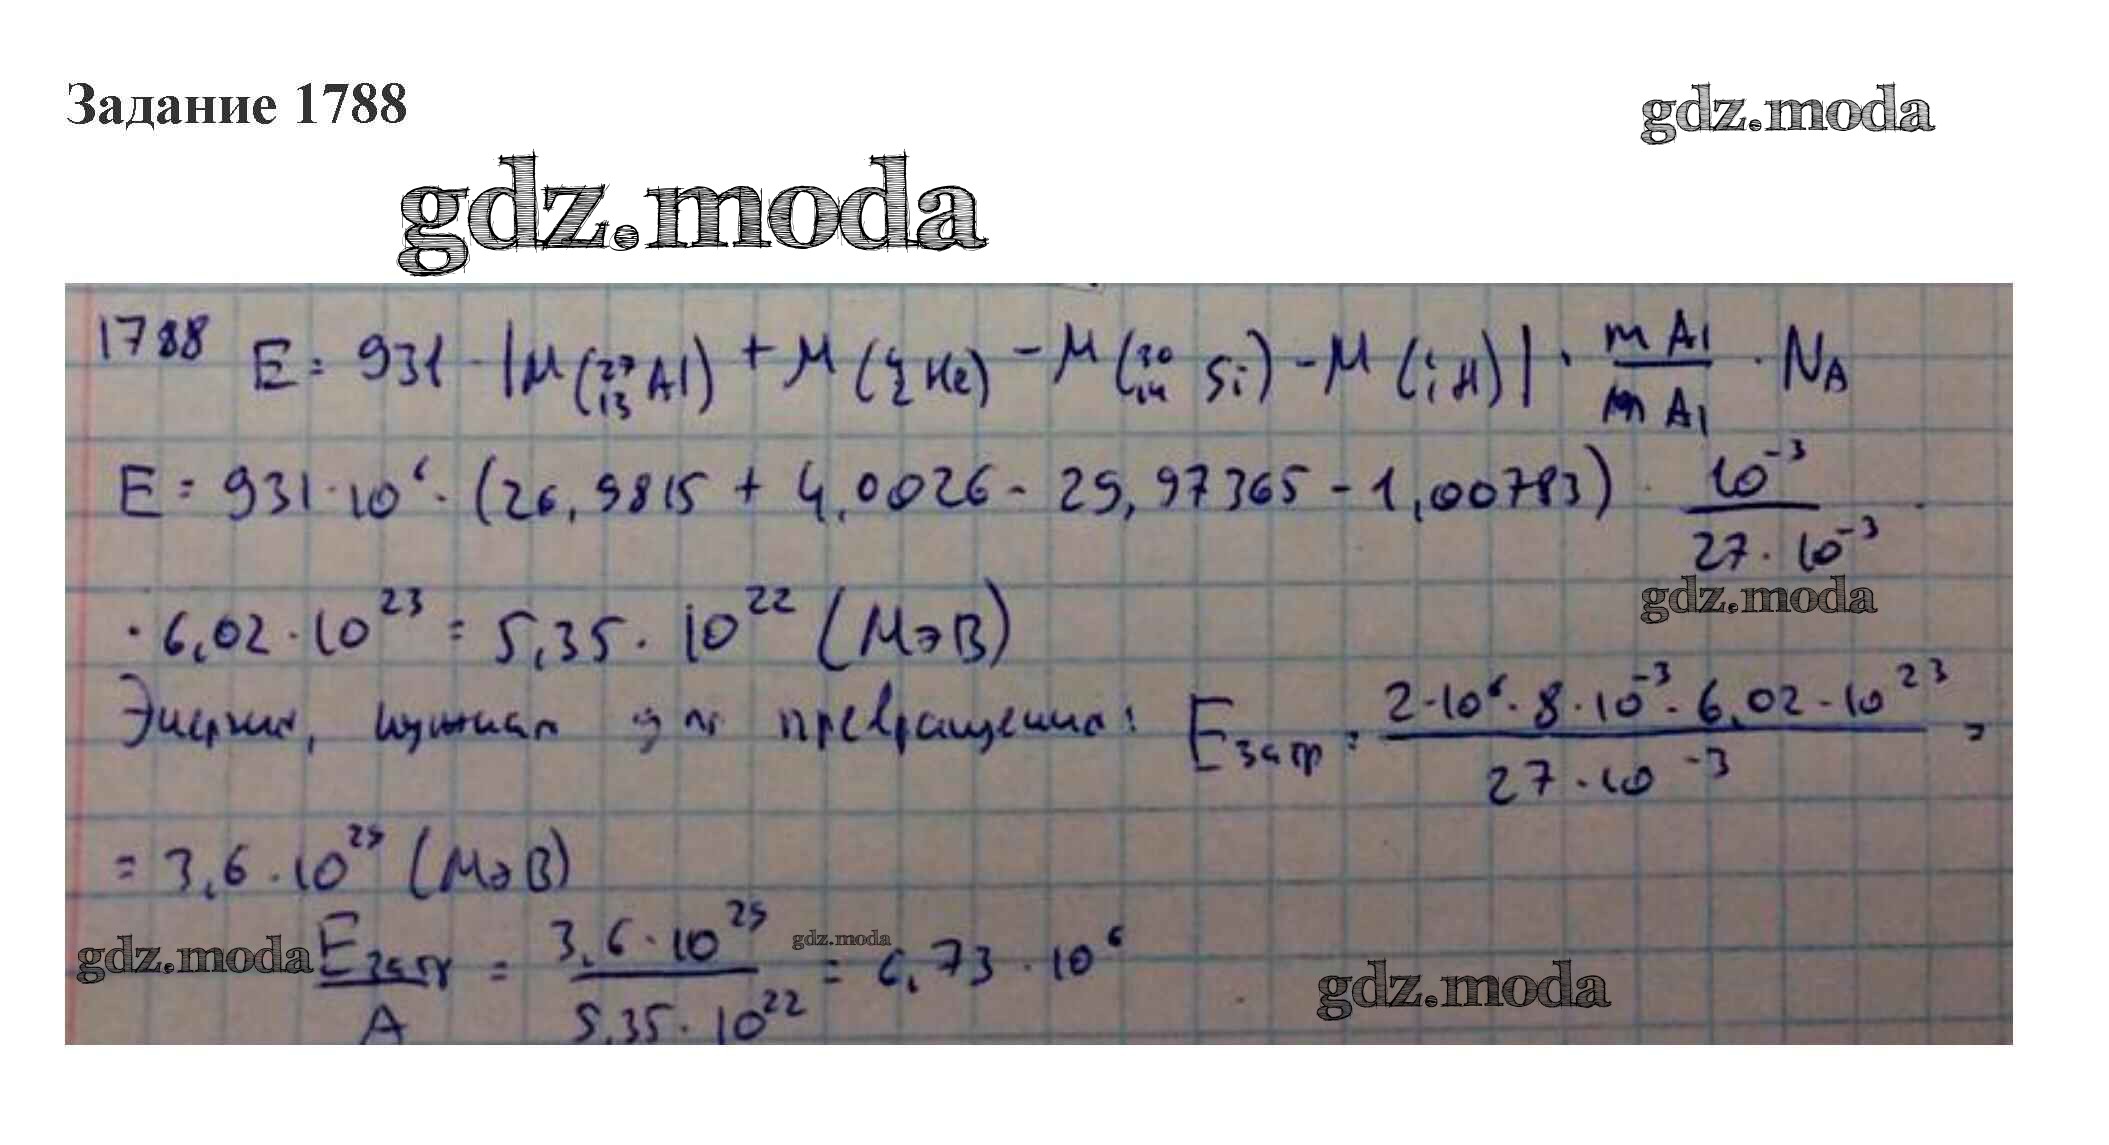 Задание 1788
gdz.moda
gdz.moda
1788 E = 931 · |M(²⁷₁₃Al) + M(⁴₂He) - M(³⁰₁₄Si) - M(¹₁H)| · mAl/mAl · Nₐ
E = 931·10⁶·(26,9815 + 4,0026 - 29,97365 - 1,00783) · 10⁻³/27·10⁻³ ·
gdz.moda
· 6,02·10²³ = 5,35·10²² (МэВ)
Энергия, нужная для превращения: Eзатр = 2·10⁶·8·10⁻³·6,02·10²³/27·10⁻³ =
= 3,6·10²⁹ (МэВ)
gdz.moda Eзатр/A = 3,6·10²⁹/5,35·10²² gdz.moda = 6,73·10⁶
gdz.moda